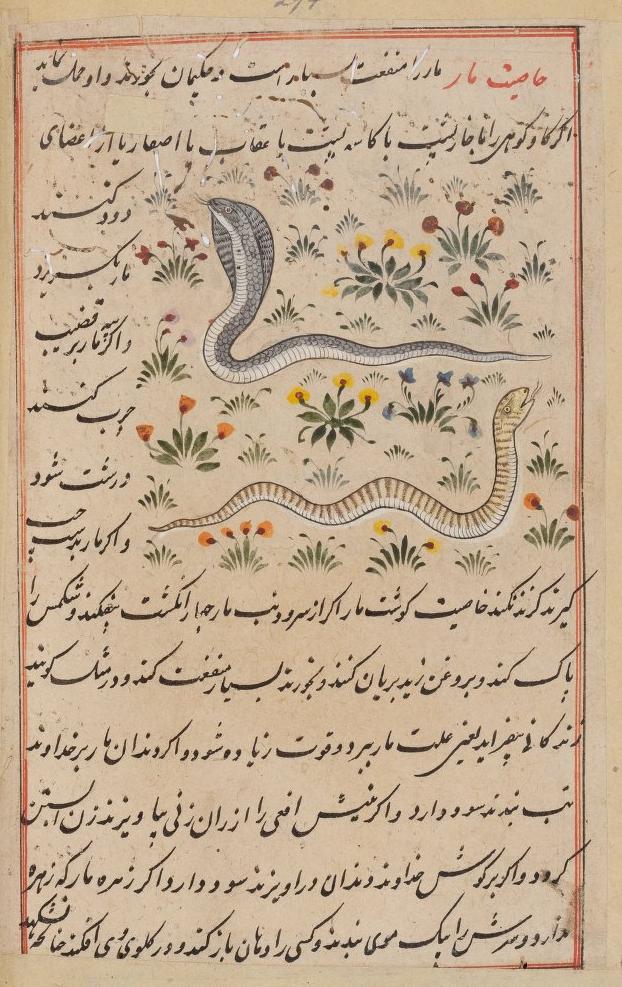 خاصیت مار مار را منفعت بسیار است و حکیمان بخورند و او
اگر گاو کوهی را با خارپشت یا کاسه پشت یا عقاب یا یا از اعضای
دود کنند
مار بگریزد
و اگر پیه مار بر قضیب
چرب کنند
درشت شود
و اگر مار بدست چپ
گیرند گزند نکند خاصیت گوشت مار اگر از سر و دنب مار چهار انگشت بیفکنند و شکمش را
پاک کنند و بروغن زیت بریان کنند و بخورند بسیار منفعت کند و در مثل گویند
زندگانی بیفزاید یعنی علت مار ببرد و قوت زیاده شود و اگر دندان مار بر خداوند
تب بندند سود دارد و اگر نیش افعی را از ران زنی بیاویزند زن آبستن
گردد و اگر بر گوش خداوند دندان درد آویزند سود دارد و اگر زهره مار که زهره
ندارد و سرش را بیک موی بندند و کسی را دهان باز کنند و در گلوی وی افکنند چنانکه